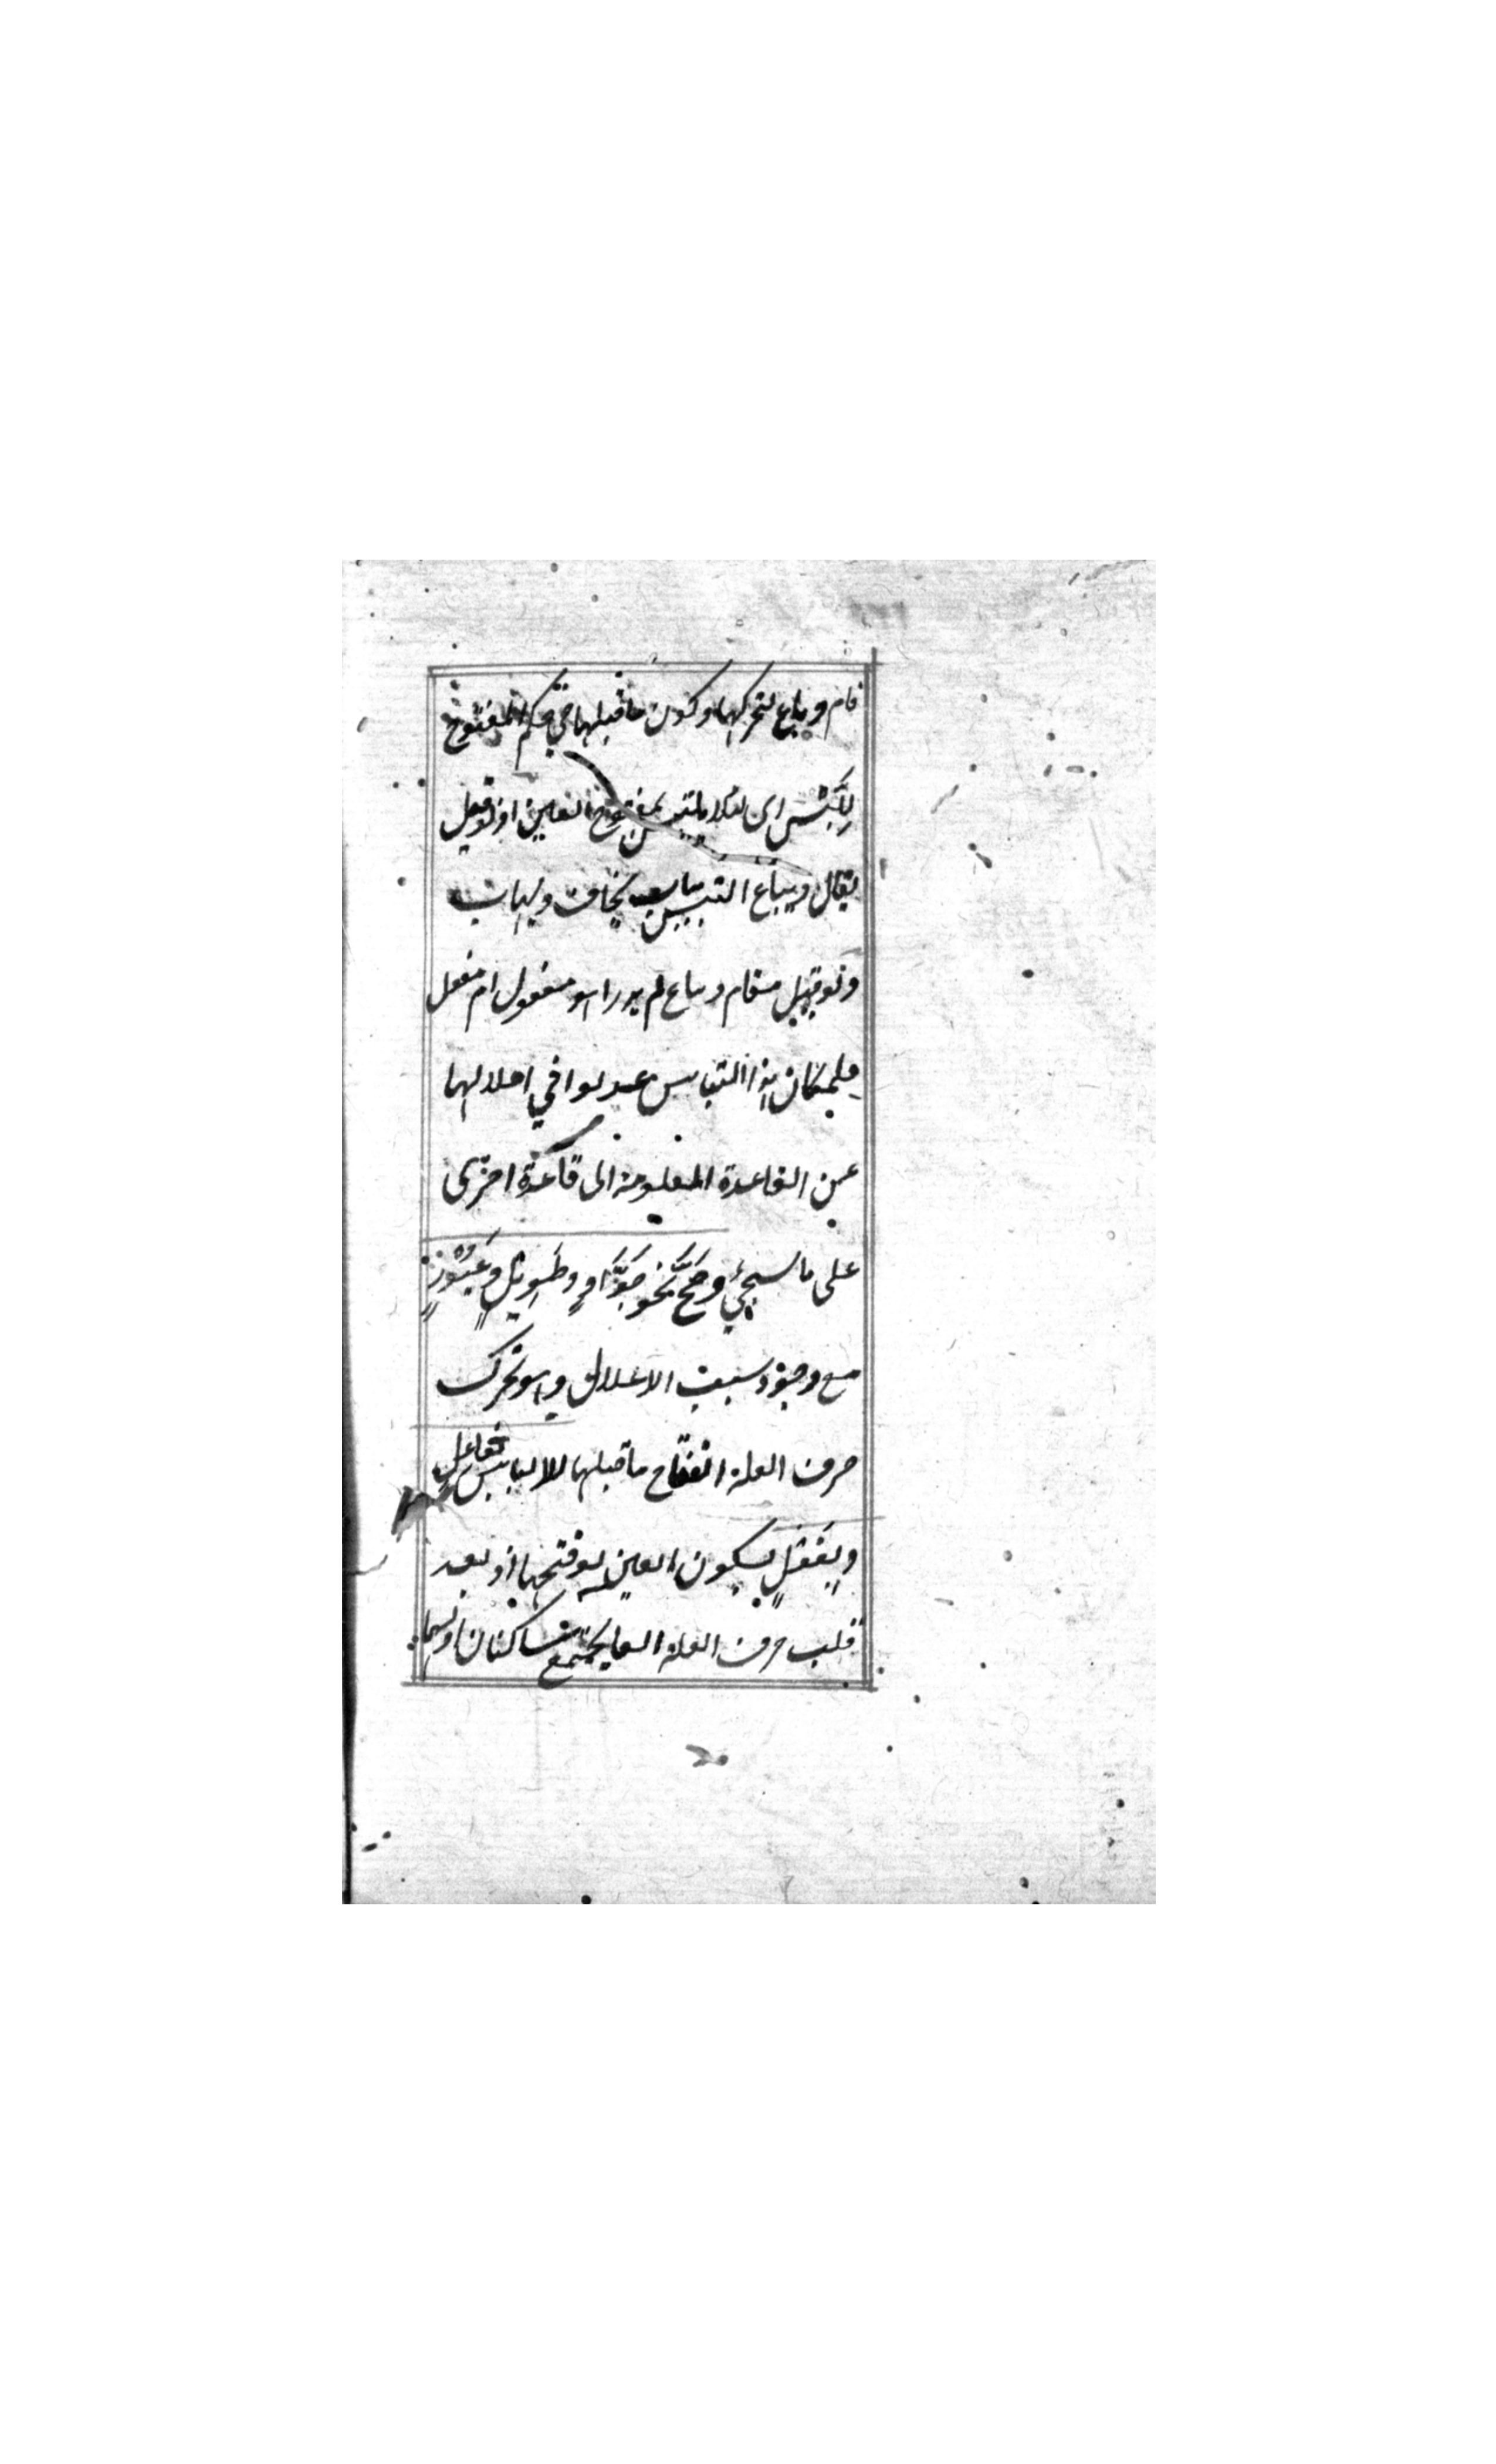 قام وباع لتحركهما وكون ما قبلهما في حكم المفتوح
للبس اى لئلا يلتبس بمفتوح العين اذ لو قيل
يقال ويباع التبس بباب يخاف ويهاب
ولو قيل مقام وباع لم يدر اهو مفعول ام مفعل
فلما كان هذا التباس عدلوا في اعلالهما
عن القاعدة المعلومة الى قاعدة اخرى
على ما سيجيء وصح نحو جواد وطويل وغيور
مع وجود سبب الاعلال وهو تحرك
حرف العلة انفتاح ما قبلها للالباس بفاعل
وبفعل بسكون العين او فتحها اذ بعد
قلب حرف العلة الفا يجتمع ساكنان اولهما